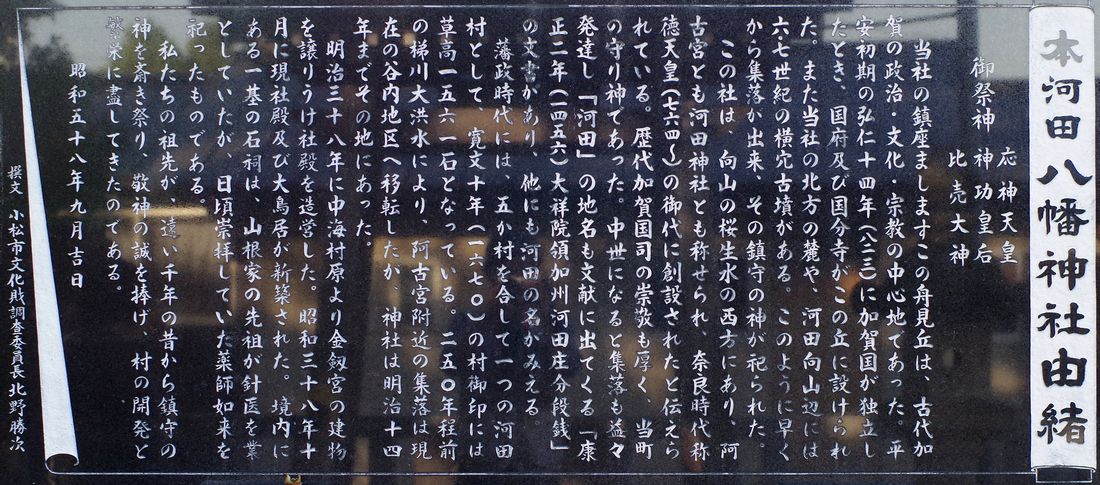 本河田八幡神社由緒
御祭神
応神天皇
神功皇后
比売大神
当社の鎮座まします この舟見丘は、古代加
賀の政治・文化・宗教の中心地であった。平
安初期の弘仁十四年(八二三)に加賀国が独立し
たとき、国府及び国分寺がこの丘に設けられ
た。また当社の北方の麓や、河田向山辺には
六・七世紀の横穴古墳がある。このように早く
から集落が出来、その鎮守の神が祀られた。
この社は、向山の桜生水の西方にあり、阿
古宮とも河田神社とも称せられ、奈良時代称
徳天皇(七六四〜)の御代に創設されたと伝えら
れている。歴代加賀国司の崇敬も厚く、当町
の守り神であった。中世になると集落も益々
発達し「河田」の地名も文献に出てくる「康
正二年(一四五六)大祥院領加州河田庄分段銭」
の文書があり、他にも河田の名がみえる。
藩政時代には、五か村を合して一つの河田
村として、寛文十年(一六七〇)の村御印には
草高一五六一石となっている。二五〇年程前
の梯川大洪水により、阿古宮附近の集落は現
在の谷内地区へ移転したが、神社は明治十四
年までその地にあった。
明治三十八年に中海村原より金劔宮の建物
を譲りうけ社殿を造営した。昭和三十八年十
月に現社殿及び大鳥居が新築された。境内に
ある一基の石祠は、山根家の先祖が針医を業
としていたが、日頃崇拝していた薬師如来を
祀ったものである。
私たちの祖先が、遠い千年の昔から鎮守の
神を斎き祭り、敬神の誠を捧げ、村の開発と
繁栄に盡してきたのである。
昭和五十八年九月吉日
撰文 小松市文化財調査委員長 北野勝次